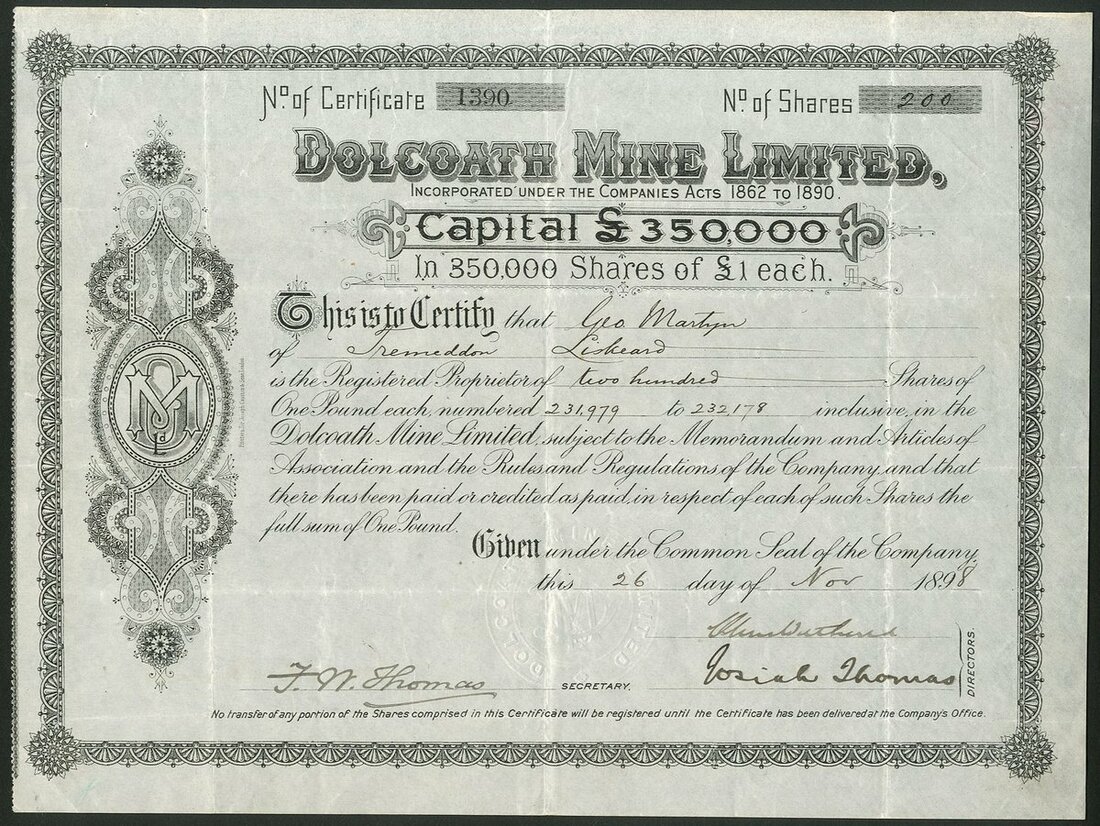 No. of Certificate 1390
No. of Shares 200
DOLCOATH MINE LIMITED,
INCORPORATED UNDER THE COMPANIES ACTS 1862 TO 1890.
Capital £350,000
In 350,000 Shares of £1 each.
This is to Certify that Geo Martyn
of Tremeddon Liskeard
is the Registered Proprietor of two hundred Shares of
One Pound each, numbered 231,979 to 232,178 inclusive, in the
Dolcoath Mine Limited, subject to the Memorandum and Articles of
Association and the Rules and Regulations of the Company, and that
there has been paid or credited as paid, in respect of each of such Shares the
full sum of One Pound.
Given under the Common Seal of the Company,
this 26 day of Nov 1898
F. W. Thomas SECRETARY.
Josiah Thomas
DIRECTORS.
No transfer of any portion of the Shares comprised in this Certificate will be registered until the Certificate has been delivered at the Company's Office.
DM Ld